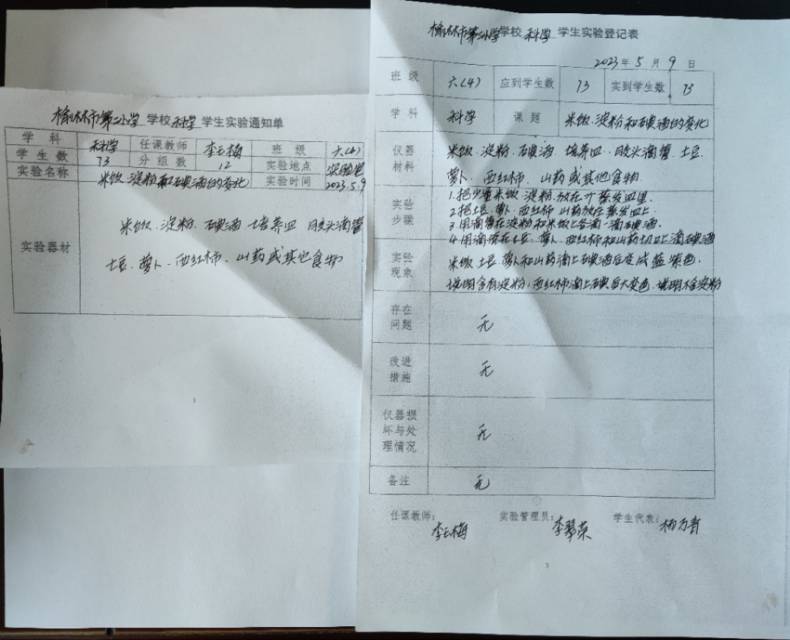 榆林市第二小学 学校 科学 学生实验通知单
学 科 科学 任课教师 李玉梅 班 级 六(4)
学 生 数 73 分 组 数 12 实验地点 实验室
实验名称 米饭、淀粉和碘酒的变化 实验时间 2023.5.9
实验器材
米饭、淀粉、碘酒、培养皿、胶头滴管
土豆、萝卜、西红柿、山药或其他食物
榆林市第二小学 学校 科学 学生实验登记表
2023 年 5 月 9 日
班 级 六(4) 应到学生数 73 实到学生数 73
学 科 科学 课 题 米饭、淀粉和碘酒的变化
仪器
材料
米饭、淀粉、碘酒、培养皿、胶头滴管、土豆、
萝卜、西红柿、山药或其他食物
实验
步骤
1.把少量米饭、淀粉放在
2.把土豆、萝卜、西红柿、山药放在
3.用滴管在淀粉和米饭上各滴一滴碘酒
4.用滴管在土豆、萝卜、西红柿和山药切口上滴碘酒
实验
现象
米饭、土豆、萝卜和山药滴上碘酒后变成蓝紫色,
说明含有淀粉,西红柿滴上碘后不变色,说明不含淀粉
存在
问题
无
改进
措施
无
仪器损
坏与处
理情况
无
备注 无
任课教师: 李玉梅 实验管理员: 李翠荣 学生代表: